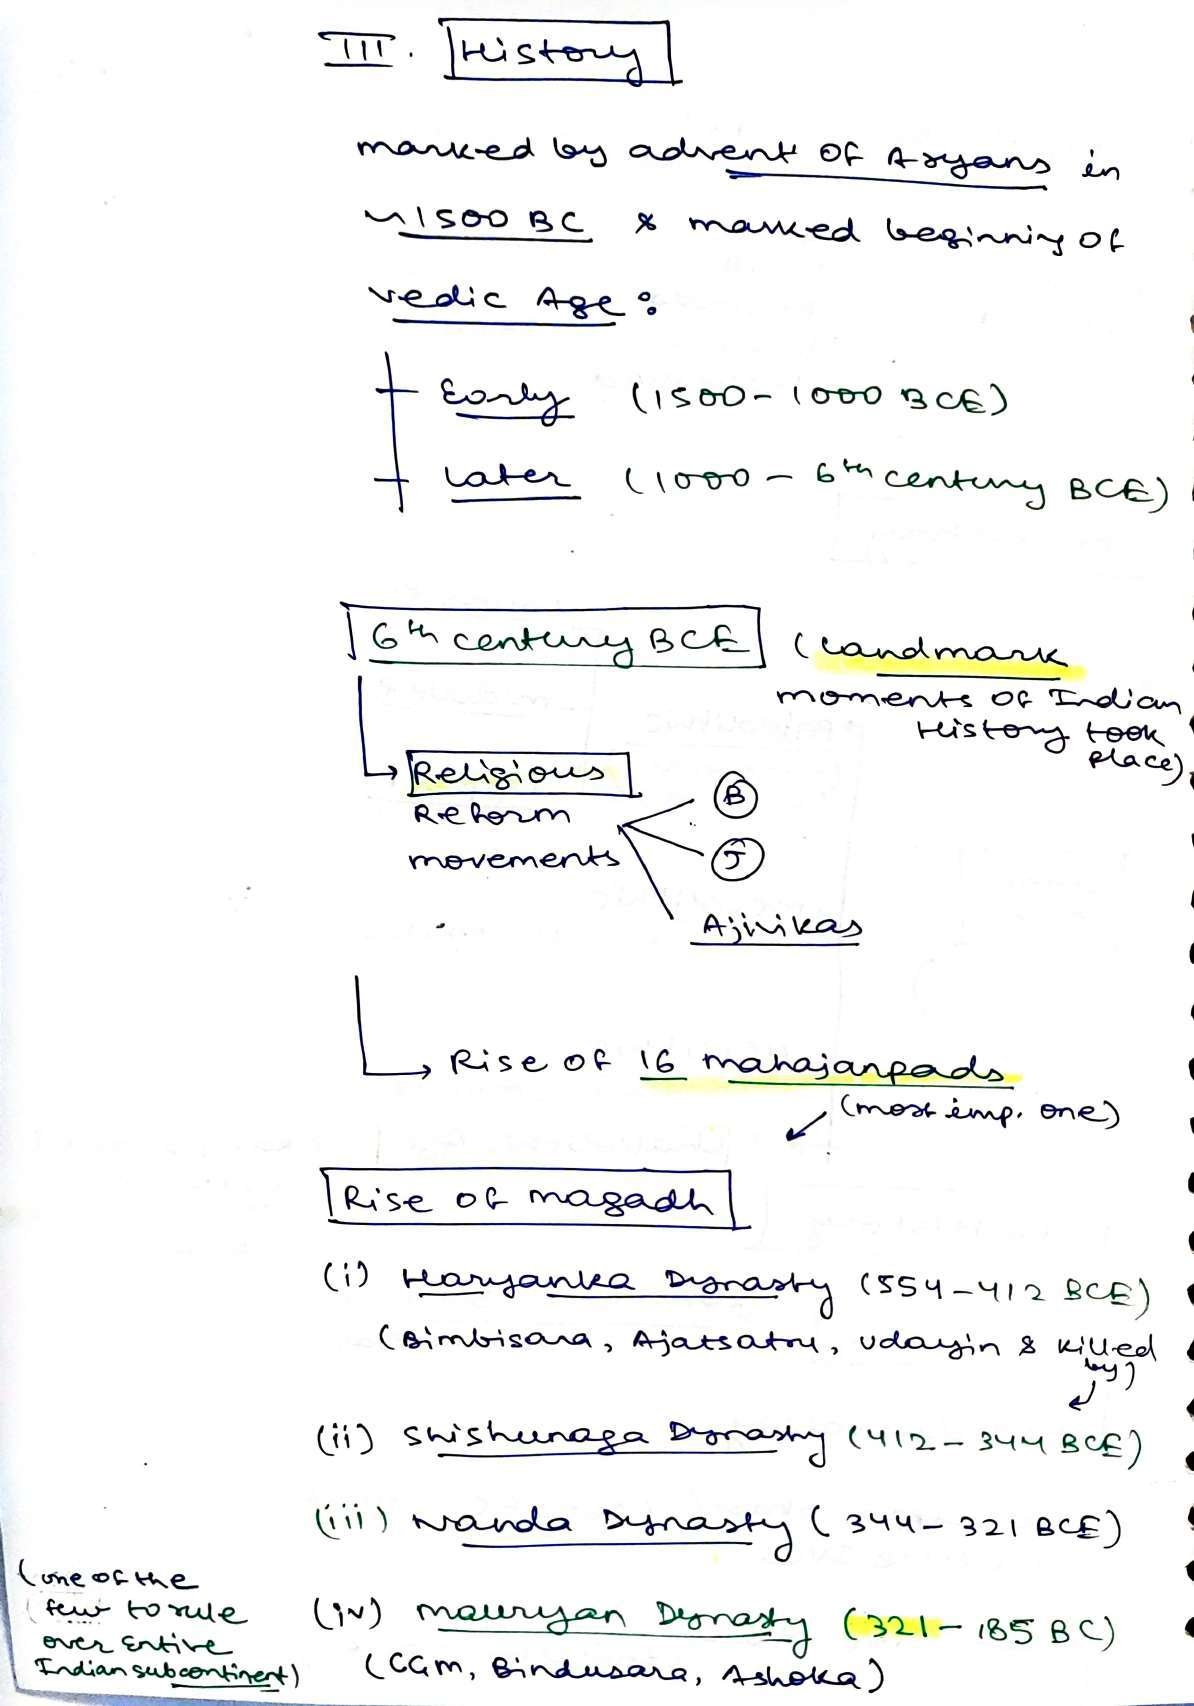 III. History
marked by advent of Aryans in
~1500 BC & marked beginning of
Vedic Age:
Early (1500-1000 BCE)
Later (1000 - 6th century BCE)
6th century BCE (Landmark
moments of Indian
History took
place)
Religious
Reform
movements
B
J
Ajivikas
Rise of 16 mahajanpads
(most imp. one)
Rise of magadh
(i) Haryanka Dynasty (554-412 BCE)
(Bimbisara, Ajatsatru, Udayin & killed
by)
(ii) Shishunaga Dynasty (412-344 BCE)
(iii) Nanda Dynasty (344-321 BCE)
(one of the
few to rule
over entire
Indian subcontinent)
(iv) mauryan Dynasty (321-185 BC)
(CGM, Bindusara, Ashoka)